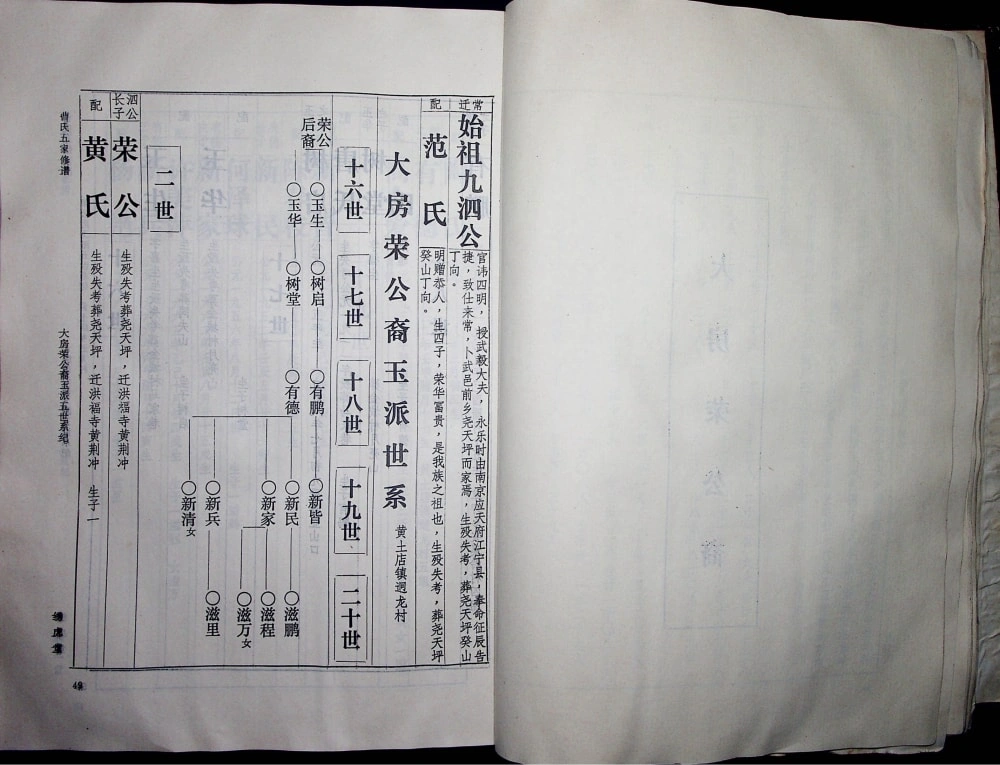 常迁
始祖九泗公
官讳四明，授武毅大夫，永乐时由南京应天府江宁县，奉命征辰告
捷，致仕来常，卜武邑前乡尧天坪而家焉，生殁失考，葬尧天坪癸山
丁向。
配
范氏
明赠恭人，生四子，荣华富贵，是我族之祖也，生殁失考，葬尧天坪
癸山丁向。
大房荣公裔玉派世系
黄土店镇迥龙村
十六世
十七世
十八世
十九世
二十世
荣公
后裔
○玉生
○树启
○有鹏
○新皆
○玉华
○树堂
○有德
○新民
○滋鹏
○新家
○滋程
○滋万女
○新兵
○滋里
○新清女
二世
泗公
长子
荣公
生殁失考葬尧天坪，迁洪福寺黄荆冲
配
黄氏
生殁失考葬尧天坪，迁洪福寺黄荆冲 生子一
曹氏五家修谱
大房荣公裔玉派五世系纪
49
大房荣公裔